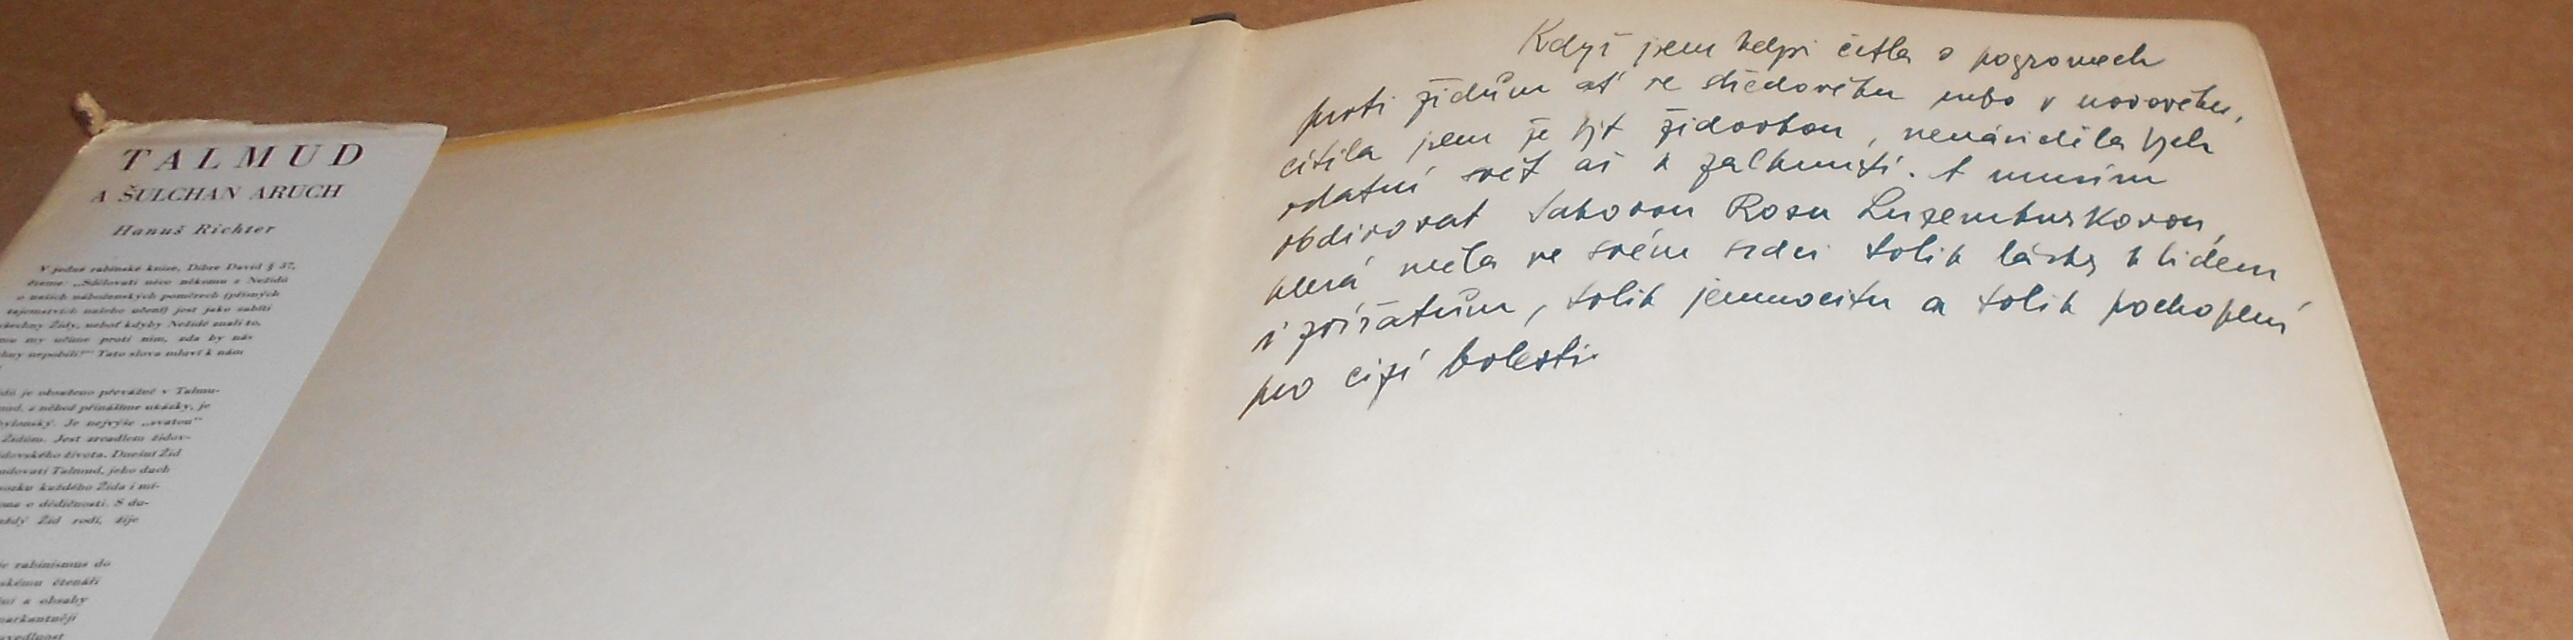 TALMUD
A ŠULCHAN ARUCH
Hanuš Richter
V jedné rabínské knize, Dibre David § 37,
čteme: „Sdělovati něco někomu z Nežidů
o našich náboženských poměrech (přísných
tajemstvích našeho učení) jest jako zabíti
všechny Židy, neboť kdyby Nežidé znali to,
my učíme proti nim, zda by nás
nepobili?" Tato slova mluví k nám
je obsaženo převážně v Talmu-
z něhož přinášíme ukázky, je
Je nejvýše „svatou"
Židům. Jest zrcadlem židov-
života. Dnešní Žid
Talmud, jeho duch
mozku každého Žida i mi-
o dědičnosti. S du-
Žid rodí, žije
rabinismus do
čtenáři
a obsahy
Když jsem kdysi četla o pogromech
proti židům ať ve středověku nebo v novověku,
cítila jsem že být židovkou, nenáviděla bych
ostatní svět až k zalknutí. A musím
obdivovat takovou Rosu Luxemburkovou,
která měla ve svém srdci tolik lásky k lidem
i zvířatům, tolik jemnocitu a tolik pochopení
pro cizí bolesti.